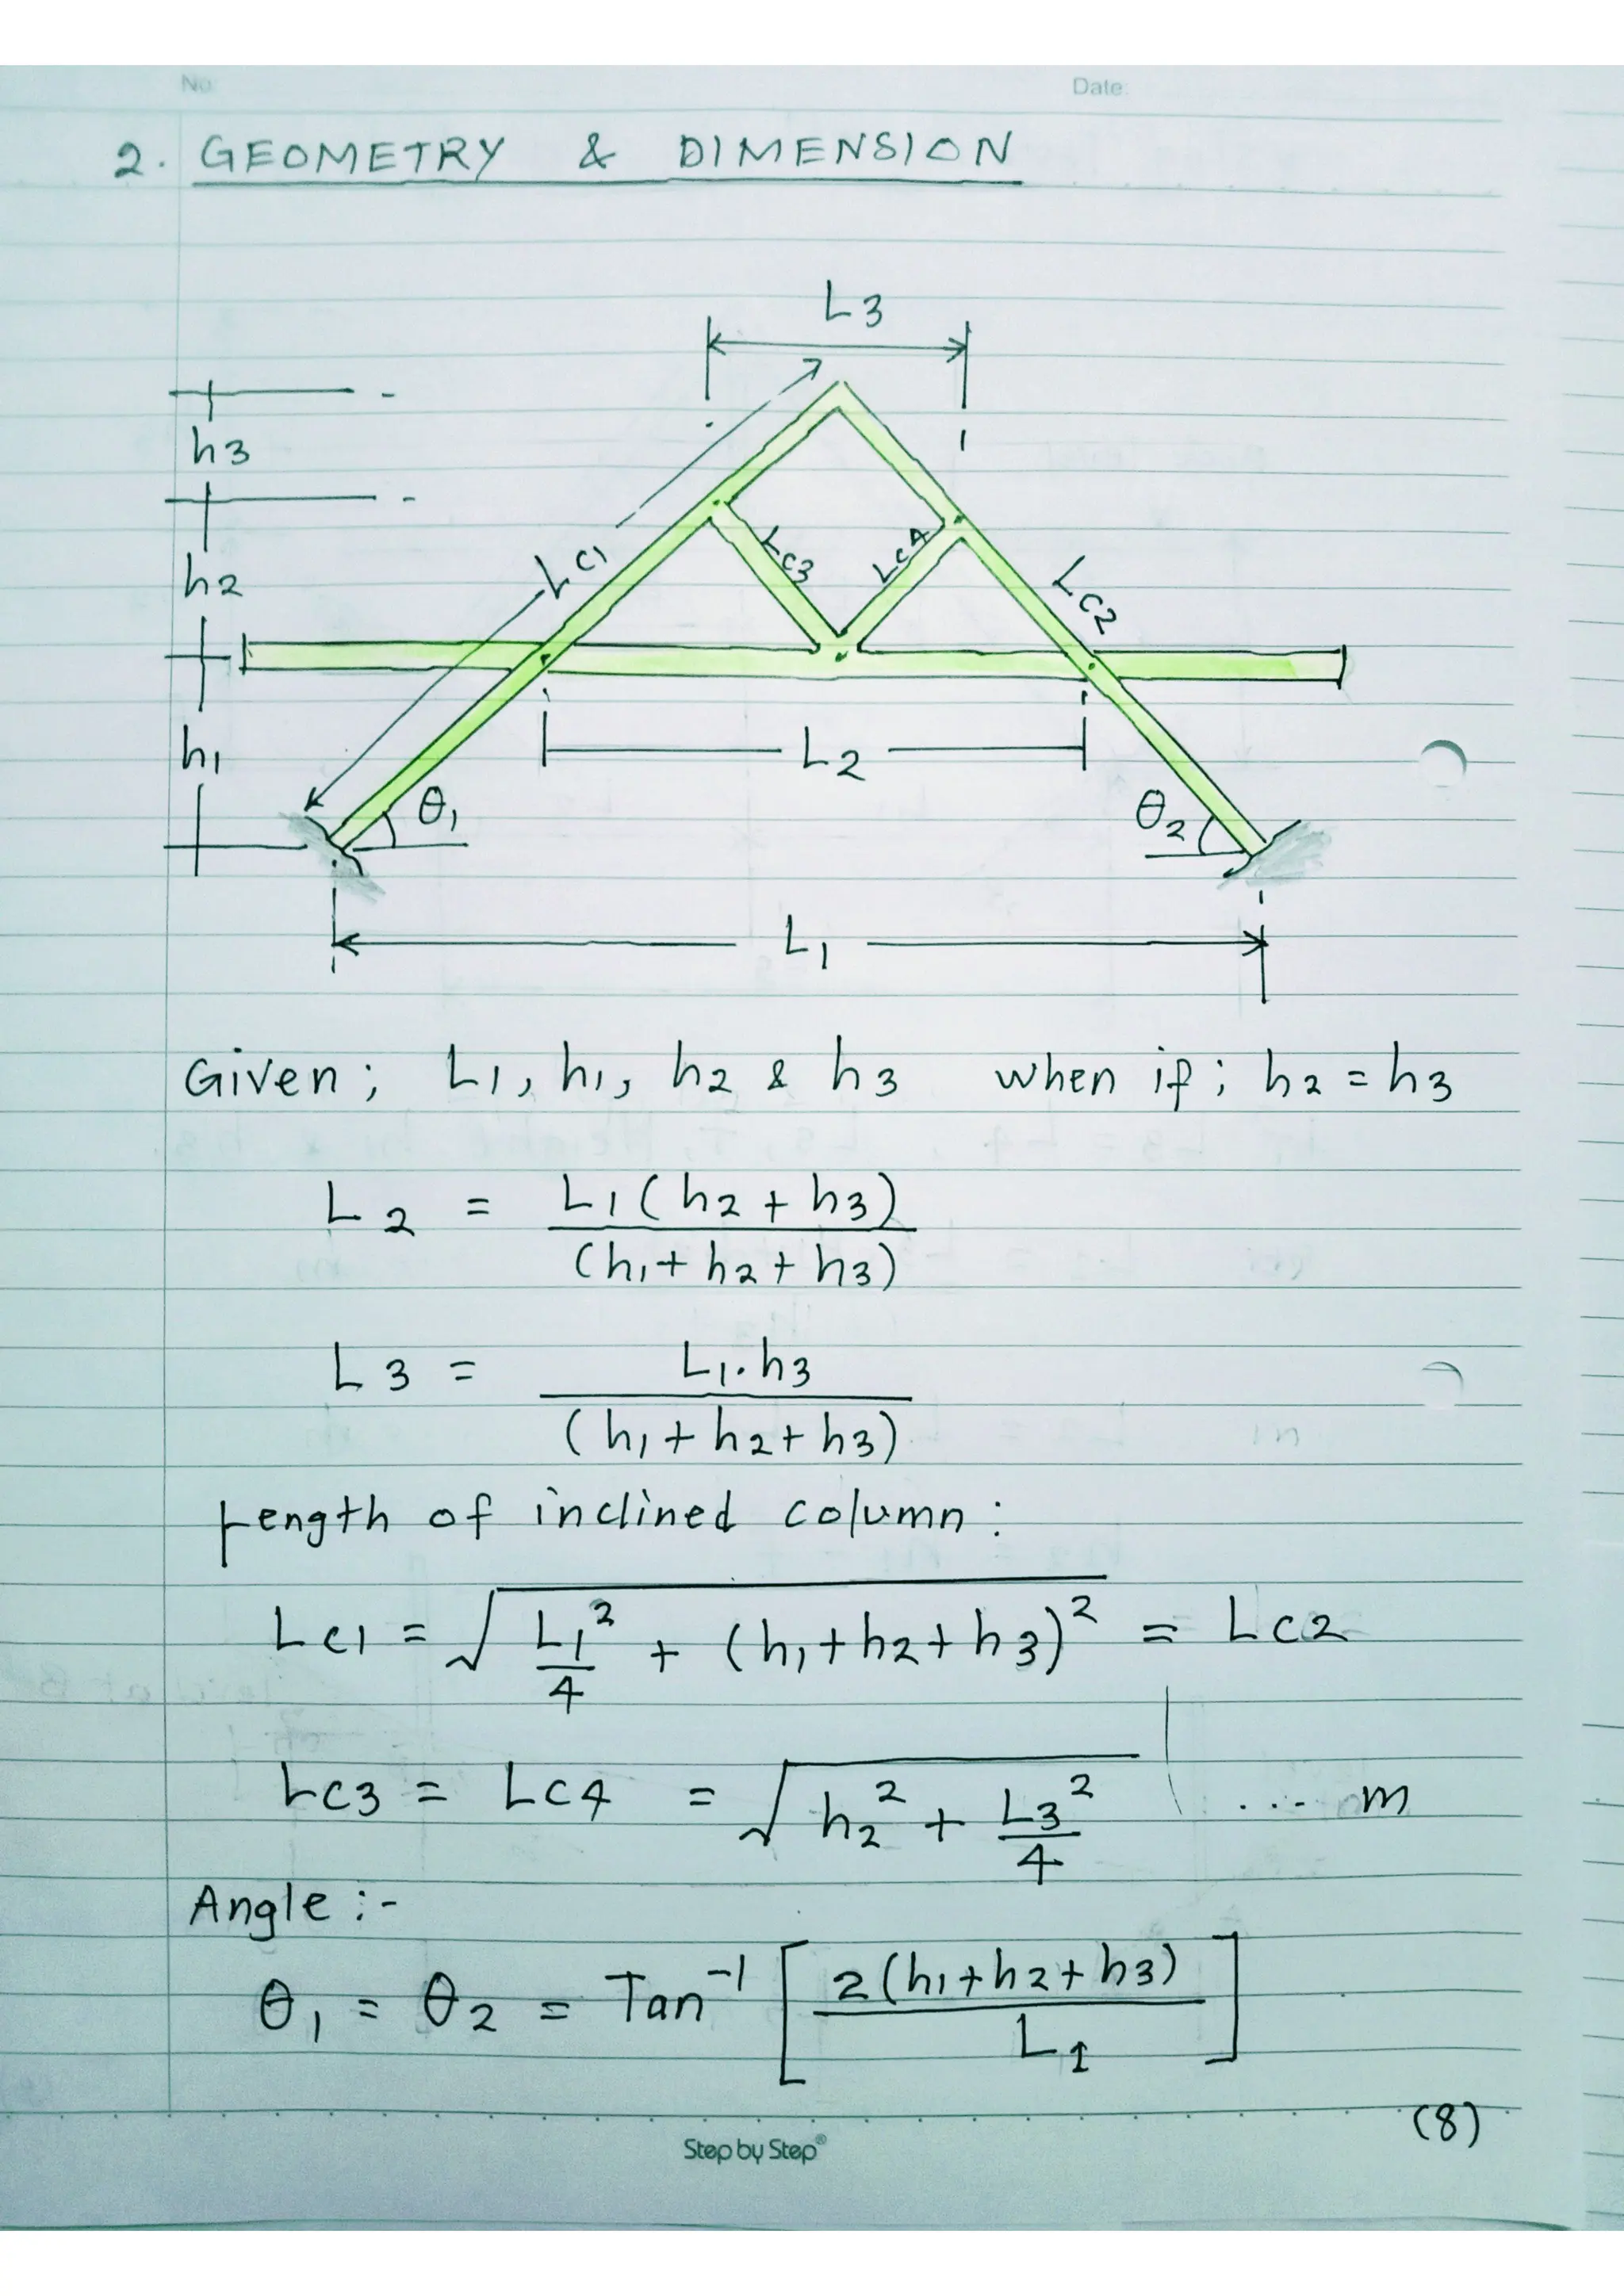 No
Date:
2. GEOMETRY & DIMENSION
L3
h3
Lc3
Lc4
Lc1
Lc2
h2
h1
L2
θ1
θ2
L1
Given; L1, h1, h2 & h3 when if; h2 = h3
L2 = L1(h2 + h3)
(h1 + h2 + h3)
L3 = L1.h3
(h1 + h2 + h3)
Length of inclined column:
Lc1 = √ L1²/4 + (h1+h2+h3)² = Lc2
Lc3 = Lc4 = √ h2² + L3²/4 ... m
Angle :-
θ1 = θ2 = Tan⁻¹ [ 2(h1+h2+h3) / L1 ]
(8)
Step by Step®